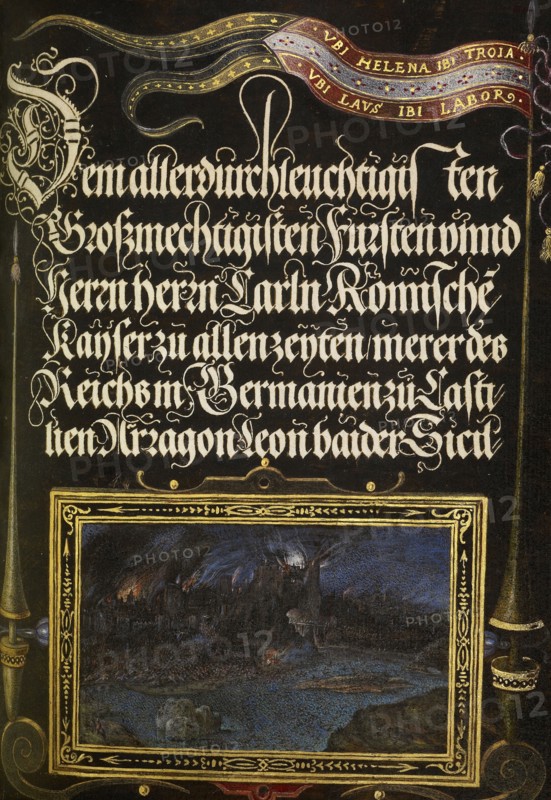 · VBI HELENA IBI TROIA ·
· VBI LAVS IBI LABOR ·
Dem allerdürchleüchtigisten
Großmechtigisten Fürsten vnnd
Herrn herrn Carln Römischē
Kayser zu allen zeyten / merer des
Reichs in Germanien zů Casti
lien Arragon Leon baider Sicil
PHOTO12